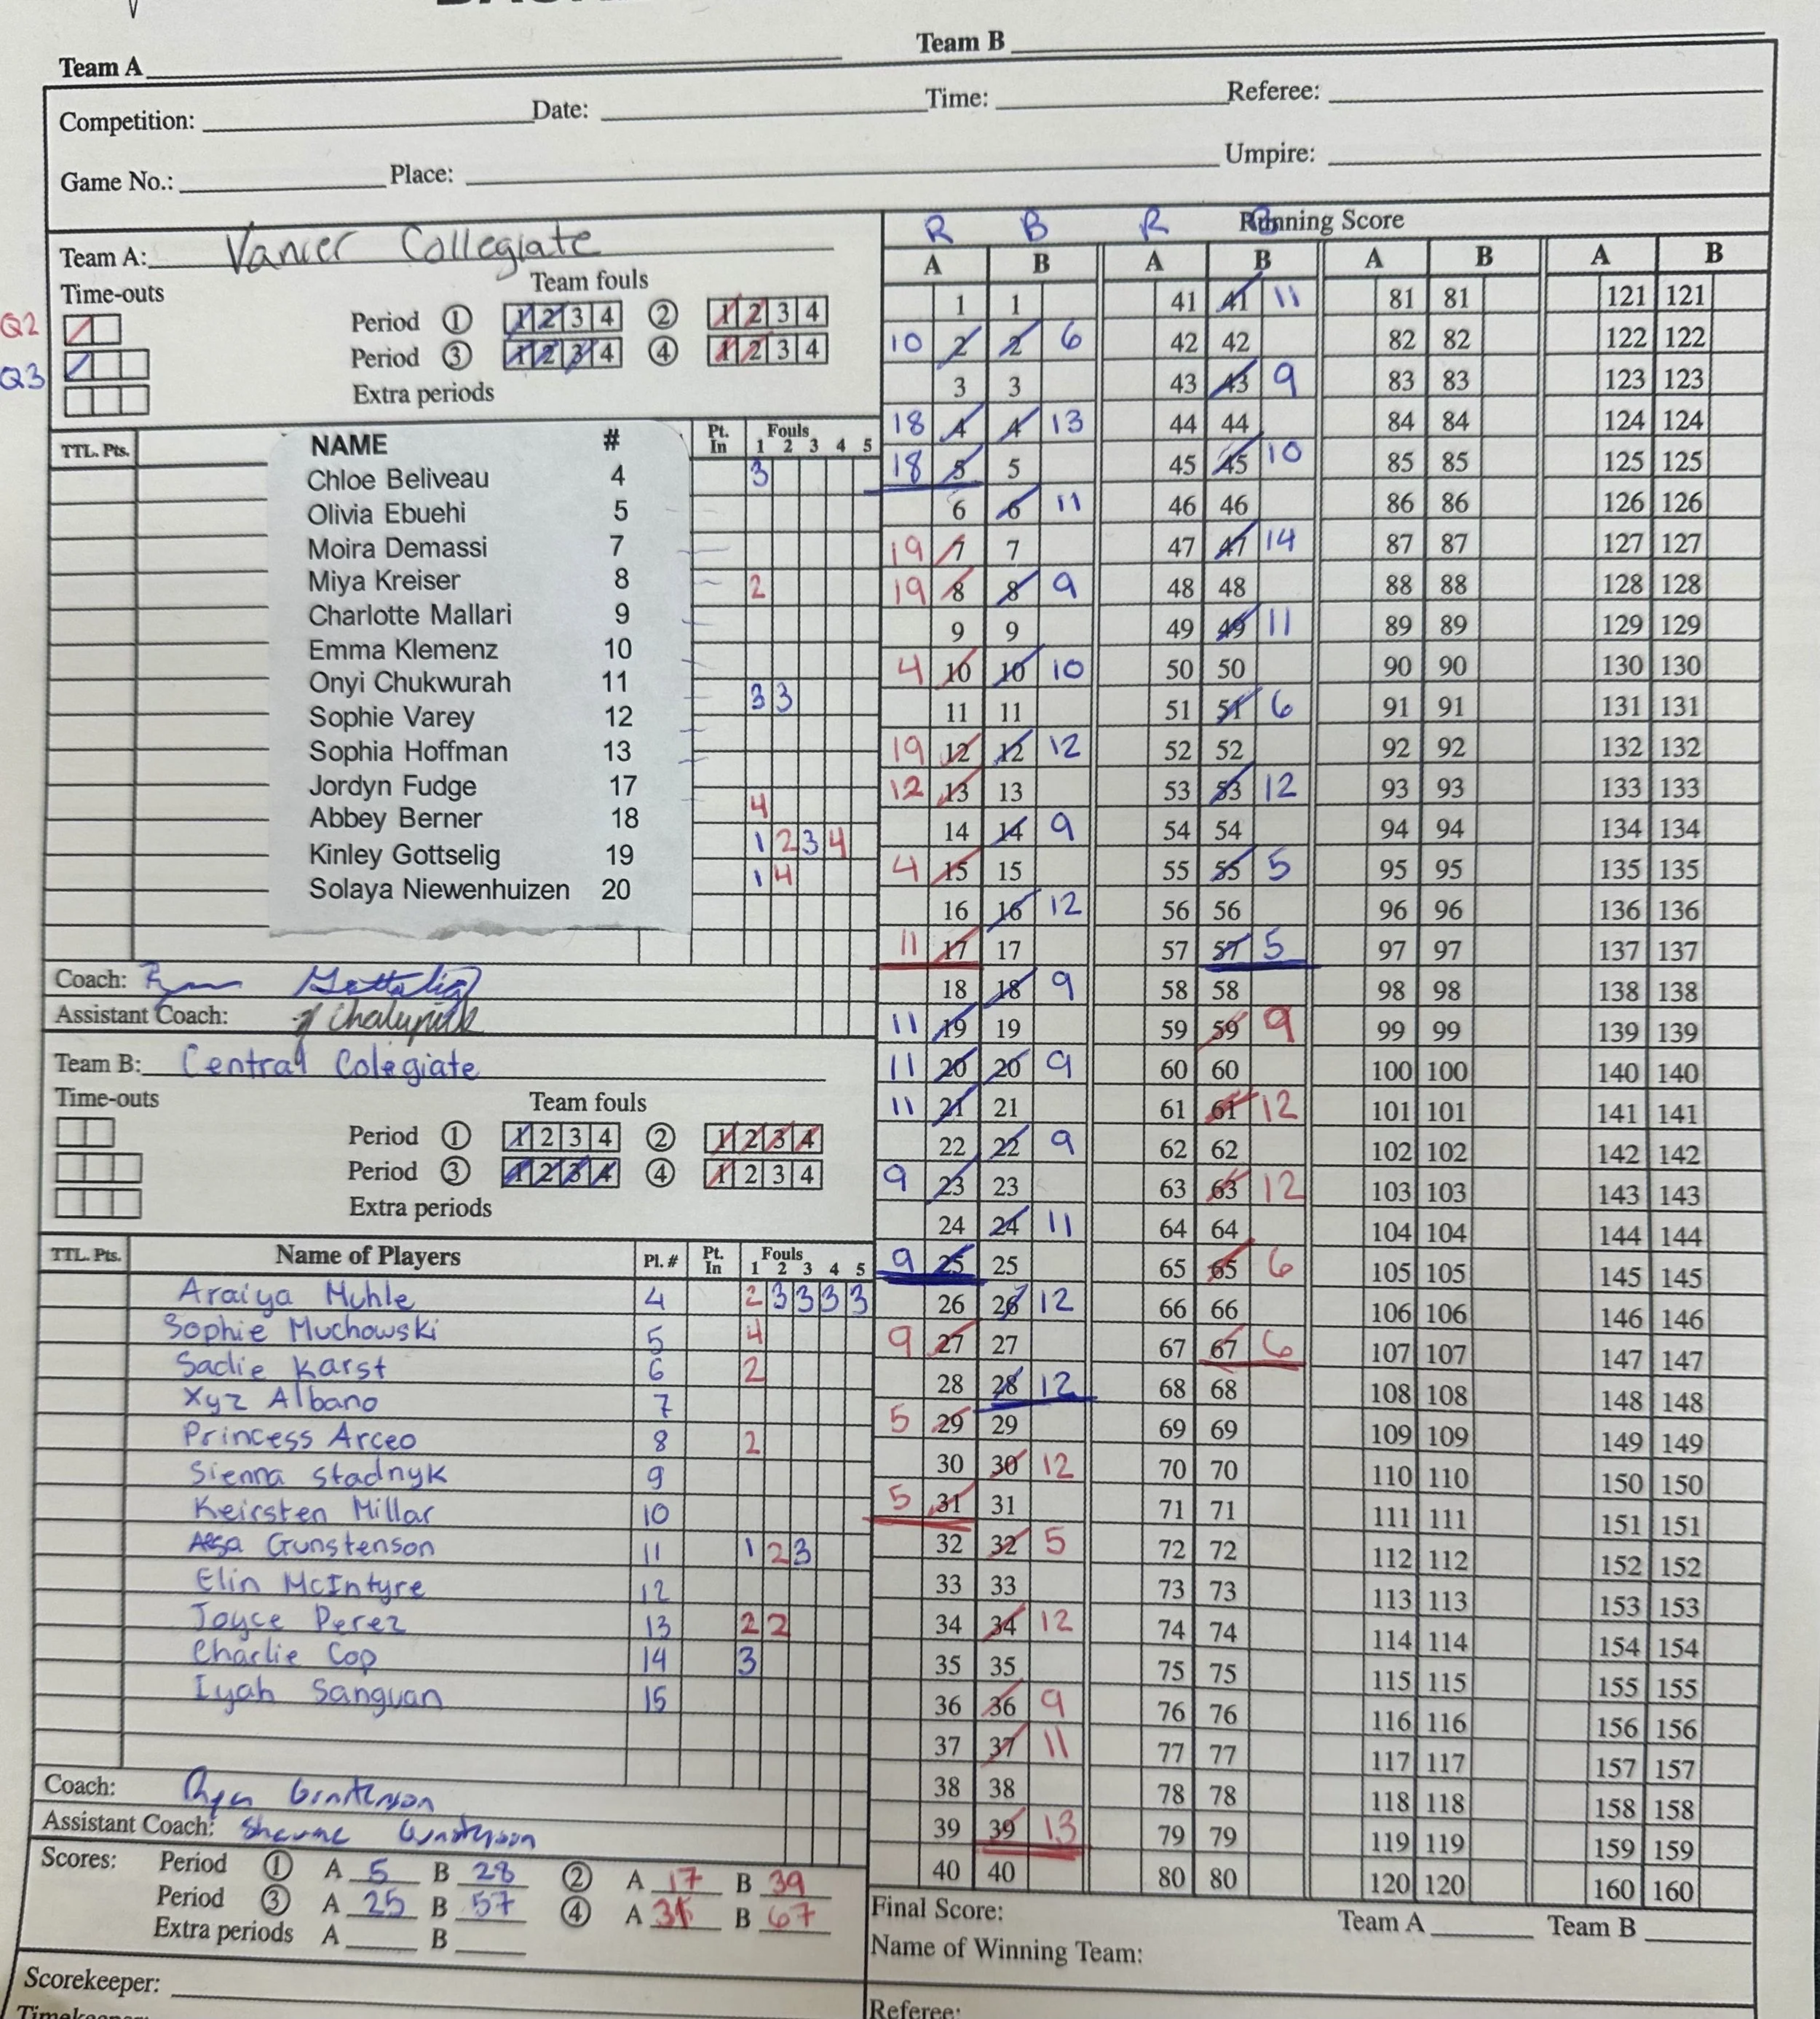 Team A Team B
Competition: Date: Time: Referee:
Game No.: Place: Umpire:
Team A: Vanier Collegiate
Time-outs Team fouls
Q2 Period 1 1 2 3 4 2 1 2 3 4
Q3 Period 3 1 2 3 4 4 1 2 3 4
Extra periods
TTL. Pts. NAME # Pt. In Fouls 1 2 3 4 5
Chloe Beliveau 4 3
Olivia Ebuehi 5
Moira Demassi 7
Miya Kreiser 8 2
Charlotte Mallari 9
Emma Klemenz 10
Onyi Chukwurah 11 3 3
Sophie Varey 12
Sophia Hoffman 13
Jordyn Fudge 17
Abbey Berner 18 4
Kinley Gottselig 19 1 2 3 4
Solaya Niewenhuizen 20 1 4
Coach:
Assistant Coach:
Team B: Central Colegiate
Time-outs Team fouls
Period 1 1 2 3 4 2 1 2 3 4
Period 3 1 2 3 4 4 1 2 3 4
Extra periods
TTL. Pts. Name of Players Pl. # Pt. In Fouls 1 2 3 4 5
Araiya Muhle 4 2 3 3 3 3
Sophie Muchowski 5 4
Sadie Karst 6 2
Xyz Albano 7
Princess Arceo 8 2
Sienna Stadnyk 9
Keirsten Millar 10
Gunstenson 11 1 2 3
Elin McIntyre 12
Joyce Perez 13 2 2
Charlie Cop 14 3
Iyah Sanguan 15
Coach:
Assistant Coach:
Scores: Period 1 A 5 B 28 2 A 17 B 39
Period 3 A 25 B 57 4 A 31 B 67
Extra periods A B
Scorekeeper:
R B R B Running Score
A B A B A B A B
1 1 41 41 11 81 81 121 121
10 2 2 6 42 42 82 82 122 122
3 3 43 43 9 83 83 123 123
18 4 4 13 44 44 84 84 124 124
18 5 5 45 45 10 85 85 125 125
6 6 11 46 46 86 86 126 126
19 7 7 47 47 14 87 87 127 127
19 8 8 9 48 48 88 88 128 128
9 9 49 49 11 89 89 129 129
4 10 10 10 50 50 90 90 130 130
11 11 51 51 6 91 91 131 131
19 12 12 12 52 52 92 92 132 132
12 13 13 53 53 12 93 93 133 133
14 14 9 54 54 94 94 134 134
4 15 15 55 55 5 95 95 135 135
16 16 12 56 56 96 96 136 136
11 17 17 57 57 5 97 97 137 137
18 18 9 58 58 98 98 138 138
11 19 19 59 59 9 99 99 139 139
11 20 20 9 60 60 100 100 140 140
11 21 21 61 61 12 101 101 141 141
22 22 9 62 62 102 102 142 142
9 23 23 63 63 12 103 103 143 143
24 24 11 64 64 104 104 144 144
9 25 25 65 65 6 105 105 145 145
26 26 12 66 66 106 106 146 146
9 27 27 67 67 6 107 107 147 147
28 28 12 68 68 108 108 148 148
5 29 29 69 69 109 109 149 149
30 30 12 70 70 110 110 150 150
5 31 31 71 71 111 111 151 151
32 32 5 72 72 112 112 152 152
33 33 73 73 113 113 153 153
34 34 12 74 74 114 114 154 154
35 35 75 75 115 115 155 155
36 36 9 76 76 116 116 156 156
37 37 11 77 77 117 117 157 157
38 38 78 78 118 118 158 158
39 39 13 79 79 119 119 159 159
40 40 80 80 120 120 160 160
Final Score: Team A Team B
Name of Winning Team:
Referee: